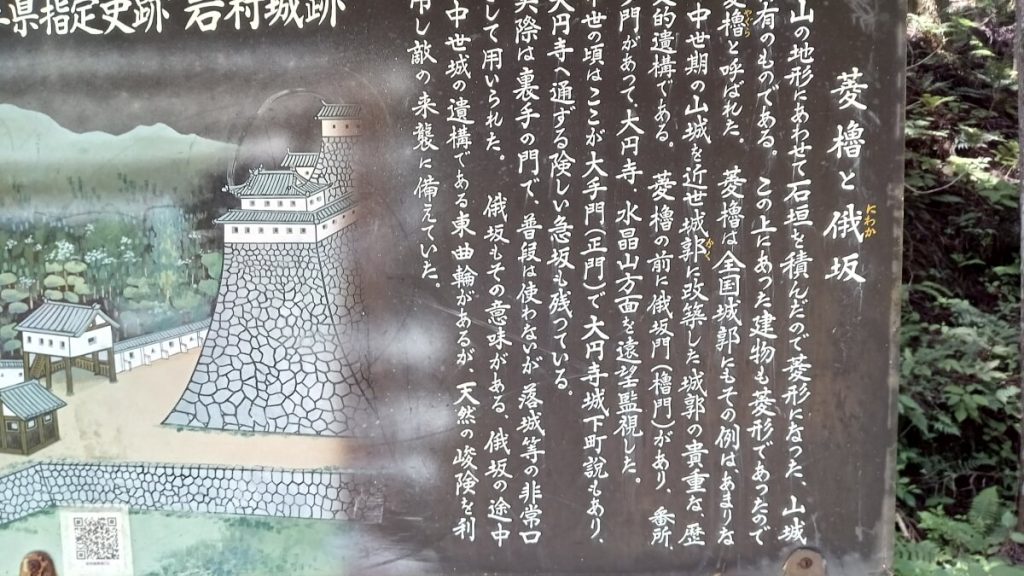 県指定史跡 岩村城跡
菱櫓と俄坂
にわか
山の地形にあわせて石垣を積んだので菱形になった、山城
有のものである。この上にあった建物も菱形であったので
菱櫓と呼ばれた。菱櫓は全国城郭にもその例はあまりな
やぐら
中世期の山城を近世城郭に改築した城郭の貴重な歴
かく
的遺構である。菱櫓の前に俄坂門(櫓門)があり、番所、
門があって、大円寺、水晶山方面を遠望監視した。
世の頃はここが大手門(正門)で大円寺城下町説もあり、
大円寺へ通ずる険しい急坂も残っている。
実際は裏手の門で、普段は使わないが落城等の非常口
して用いられた。俄坂もその意味がある、俄坂の途中
中世城の遺構である東曲輪があるが、天然の峻険を利
し敵の来襲に備えていた。